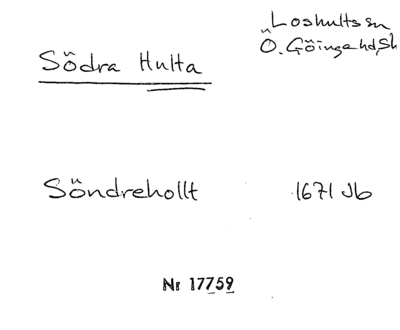 Loshults sn
Södra Hulta
Ö. Göinge hd, Sk
Söndrehollt 1671 Jb
Nr 17759